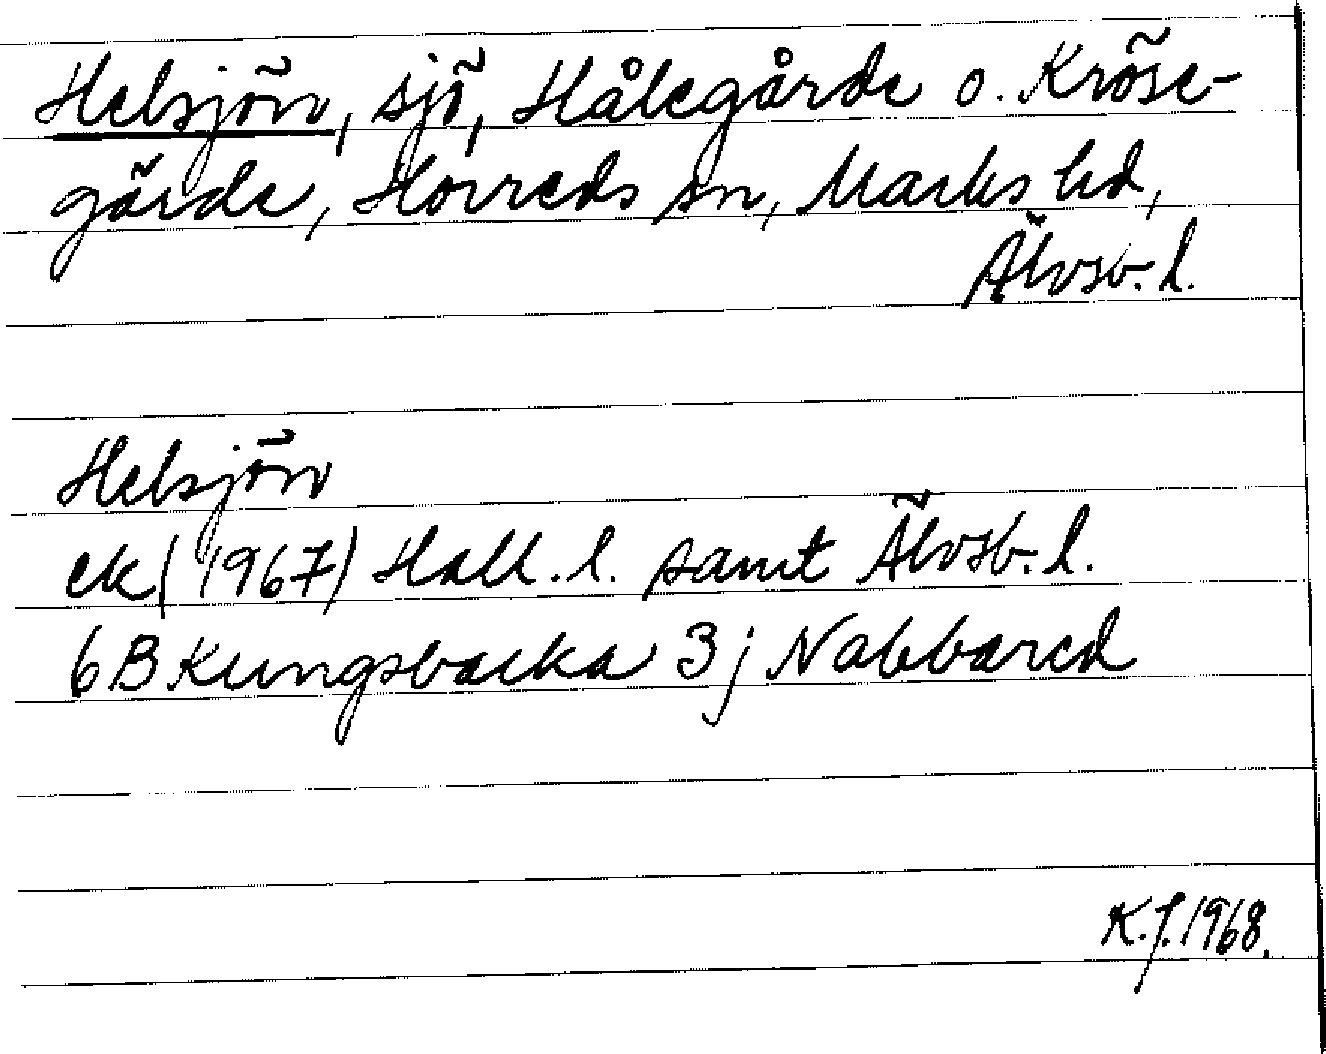 Helsjön, sjö, Hålegårde o. Kröse-
gärde, Horreds sn, Marks hd,
Älvsb. l.
Helsjön
ek (1967) Hall. l. samt Älvsb. l.
6B Kungsbacka 3j Nabbared
K.J. 1968.